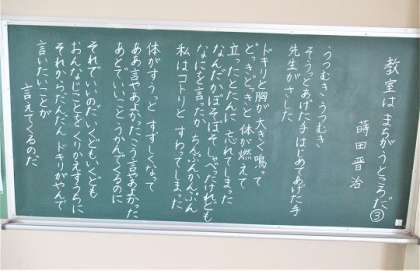 教室はまちがうところだ③
蒔田晋治
うつむき うつむき
そうっとあげた手 はじめてあげた手
先生がさした
ドキリと胸が大きく鳴って
どきっどきっと 体が燃えて
立ったとたんに 忘れてしまった
なんだかぼそぼそしゃべったけれども
なにを言ったか ちんぷんかんぷん
私はコトリと すわってしまった
体がすうっと すずしくなって
ああ言やあよかった こう言やあよかった
あとでいいこと うかんでくるのに
それでいいのだ いくどもいくども
おんなじことをくりかえすうちに
それからだんだん ドキリがやんで
言いたいことが
言えてくるのだ